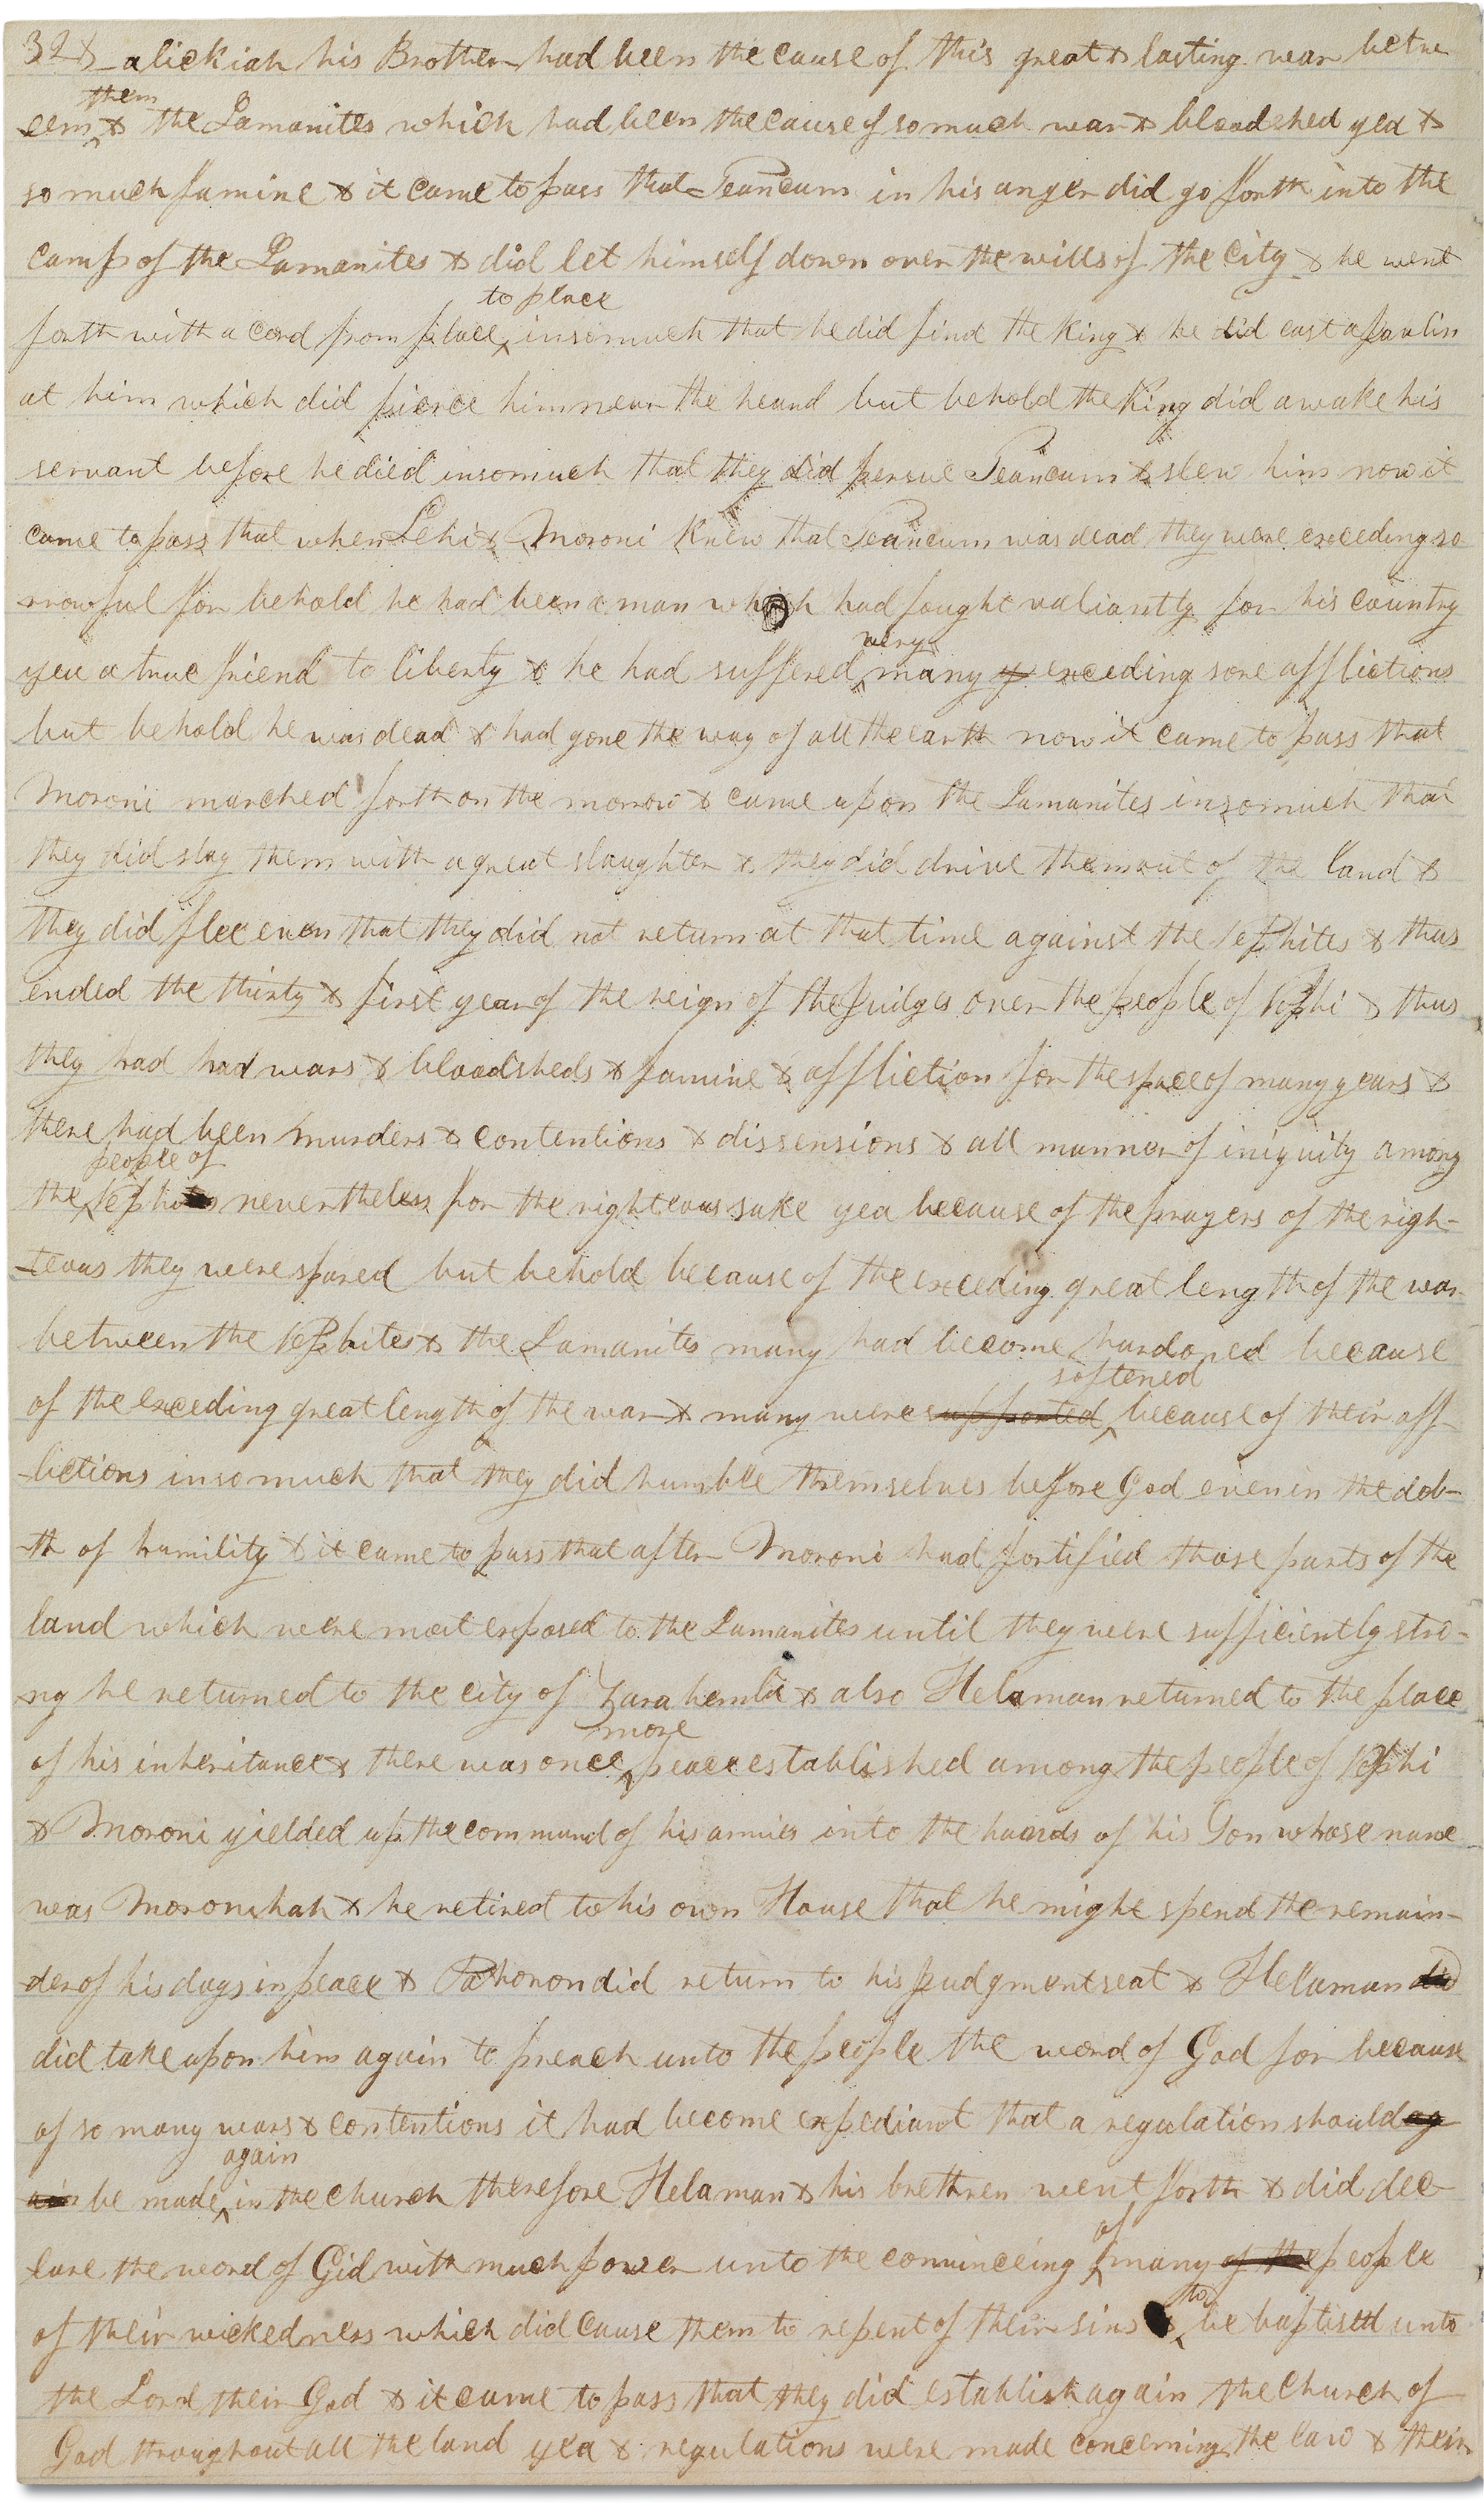 328 -alickiah his Brother had been the cause of this great & lasting war betwe
them
eem & the Lamanites which had been the cause of so much war & bloodshed yea &
so much famine & it came to pass that Teancum in his anger did go forth into the
camp of the Lamanites & did let himself down over the wills of the City & he went
to place
forth with a cord from place insomuch that he did find the King & he did cast a javlin
at him which did pierce him near the heard but behold the King did awake his
servant before he died insomuch that they did persue Teancum & slew him now it
came to pass that when Lehi & Moroni knew that Teancum was dead they were exceeding so
rrowful for behold he had been a man which had faught valiantly for his country
very
yea a true friend to liberty & he had suffered many exceeding sore afflictions
but behold he was dead & had gone the way of all the earth now it came to pass that
Moroni marched forth on the morrow & came upon the Lamanites insomuch that
they did slay them with a great slaughter & they did drive them out of the land &
they did flee even that they did not return at that time against the Nephites & thus
ended the thirty & first year of the reign of the Judges over the people of Nephi & thus
they had had wars & bloodsheds & famine & affliction for the space of many years &
there had been murders & contentions & dissensions & all manner of iniquity among
people of
the Nephites nevertheless for the righteous sake yea because of the prayers of the righ-
-teous they were spared but behold because of the exceeding great length of the war
between the Nephites & the Lamanites many had become hardoned because
softened
of the exceeding great length of the war & many were supported because of their aff-
-lictions insomuch that they did humble themselves before God even in the deb-
-th of humility & it came to pass that after Moroni had fortified those parts of the
land which were most exposed to the Lamanites until they were sufficiently stro-
-ng he returned to the city of Zarahemla & also Helaman returned to the place
more
of his inheritance & there was once peace established among the people of Nephi
& Moroni yielded up the command of his armies into the hands of his Son whose name
was Moronihah & he retired to his own House that he might spend the remain-
-der of his days in peace & Pahoron did return to his judgment seat & Helaman did
did take upon him again to preach unto the people the word of God for because
of so many wars & contentions it had become expediant that a regulation should ag
again
ain be made in the church therefore Helaman & his brethren went forth & did dec-
of
lare the word of Gid with much power unto the convinceing many of the people
to
of their wickedness which did cause them to repent of their sins & be baptised unto
the Lord their God & it came to pass that they did establish again the Church of
God throughout all the land yea & regulations were made concerning the law & their